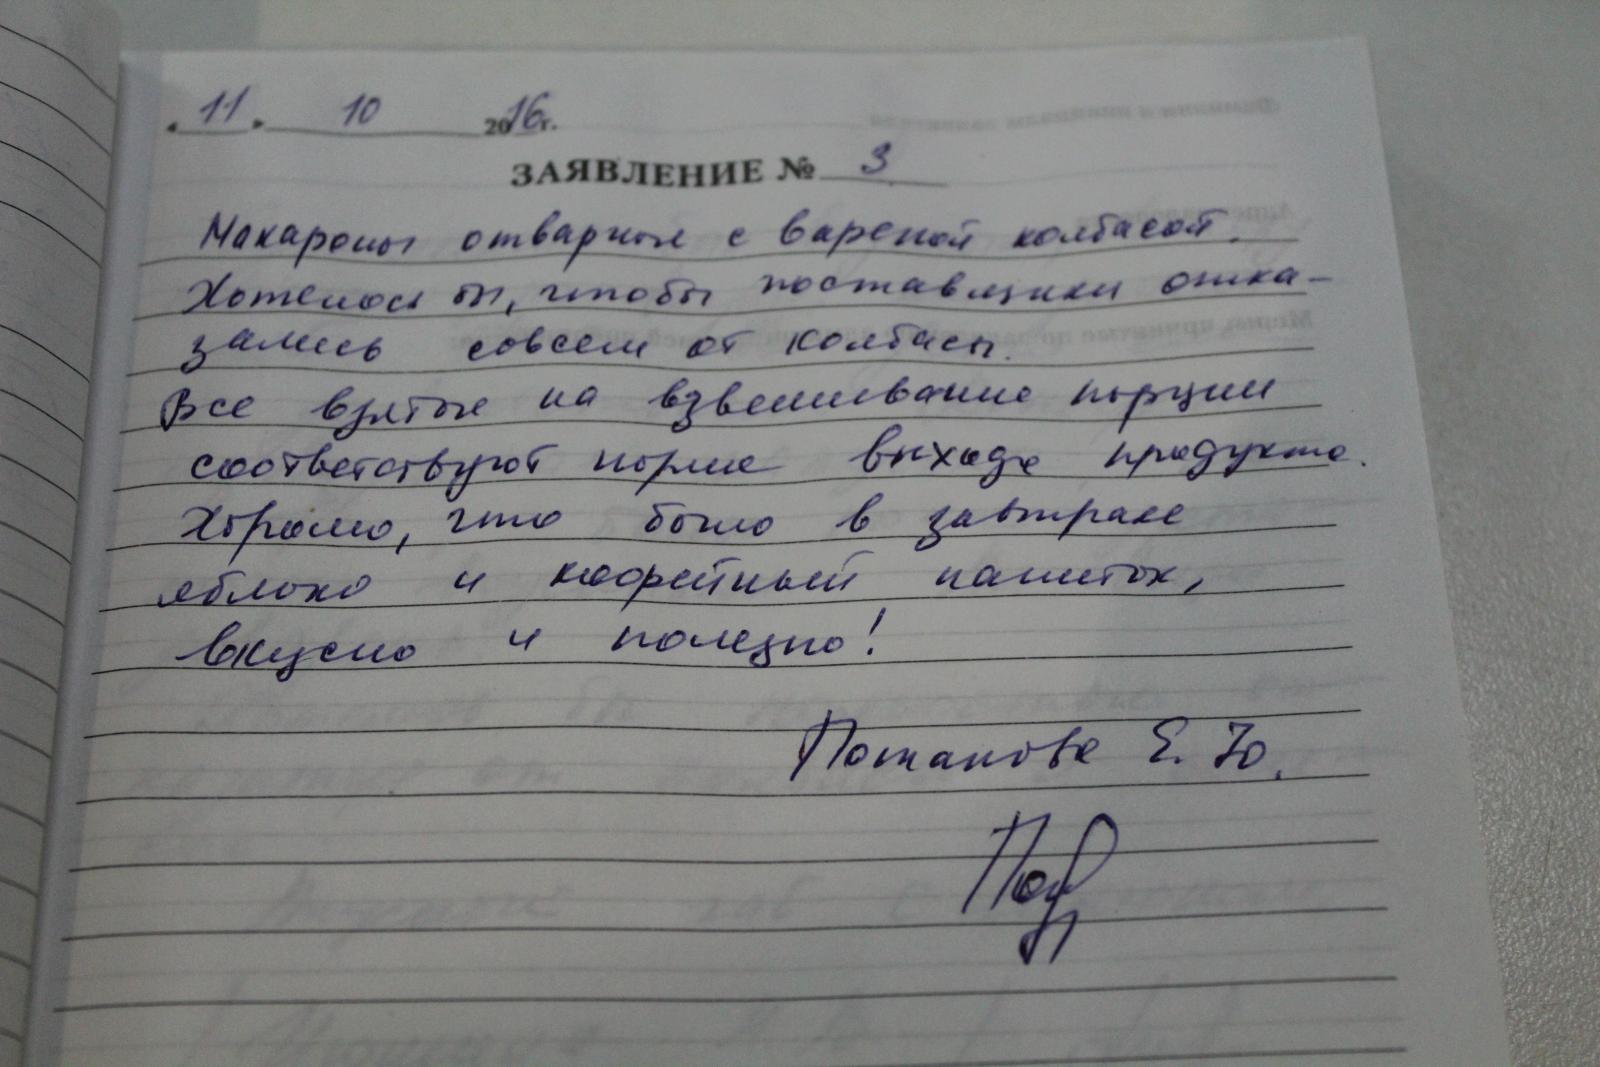 « 11 » 10 2016 г.
ЗАЯВЛЕНИЕ № 3
Макароны отварные с вареной колбасой.
Хотелось бы, чтобы поставщики отка-
зались совсем от колбасы.
Все взятые на взвешивание порции
соответствуют норме выхода продукта.
Хорошо, что было в завтраке
яблоко и кофейный напиток,
вкусно и полезно!
Потапова Е. Ю.